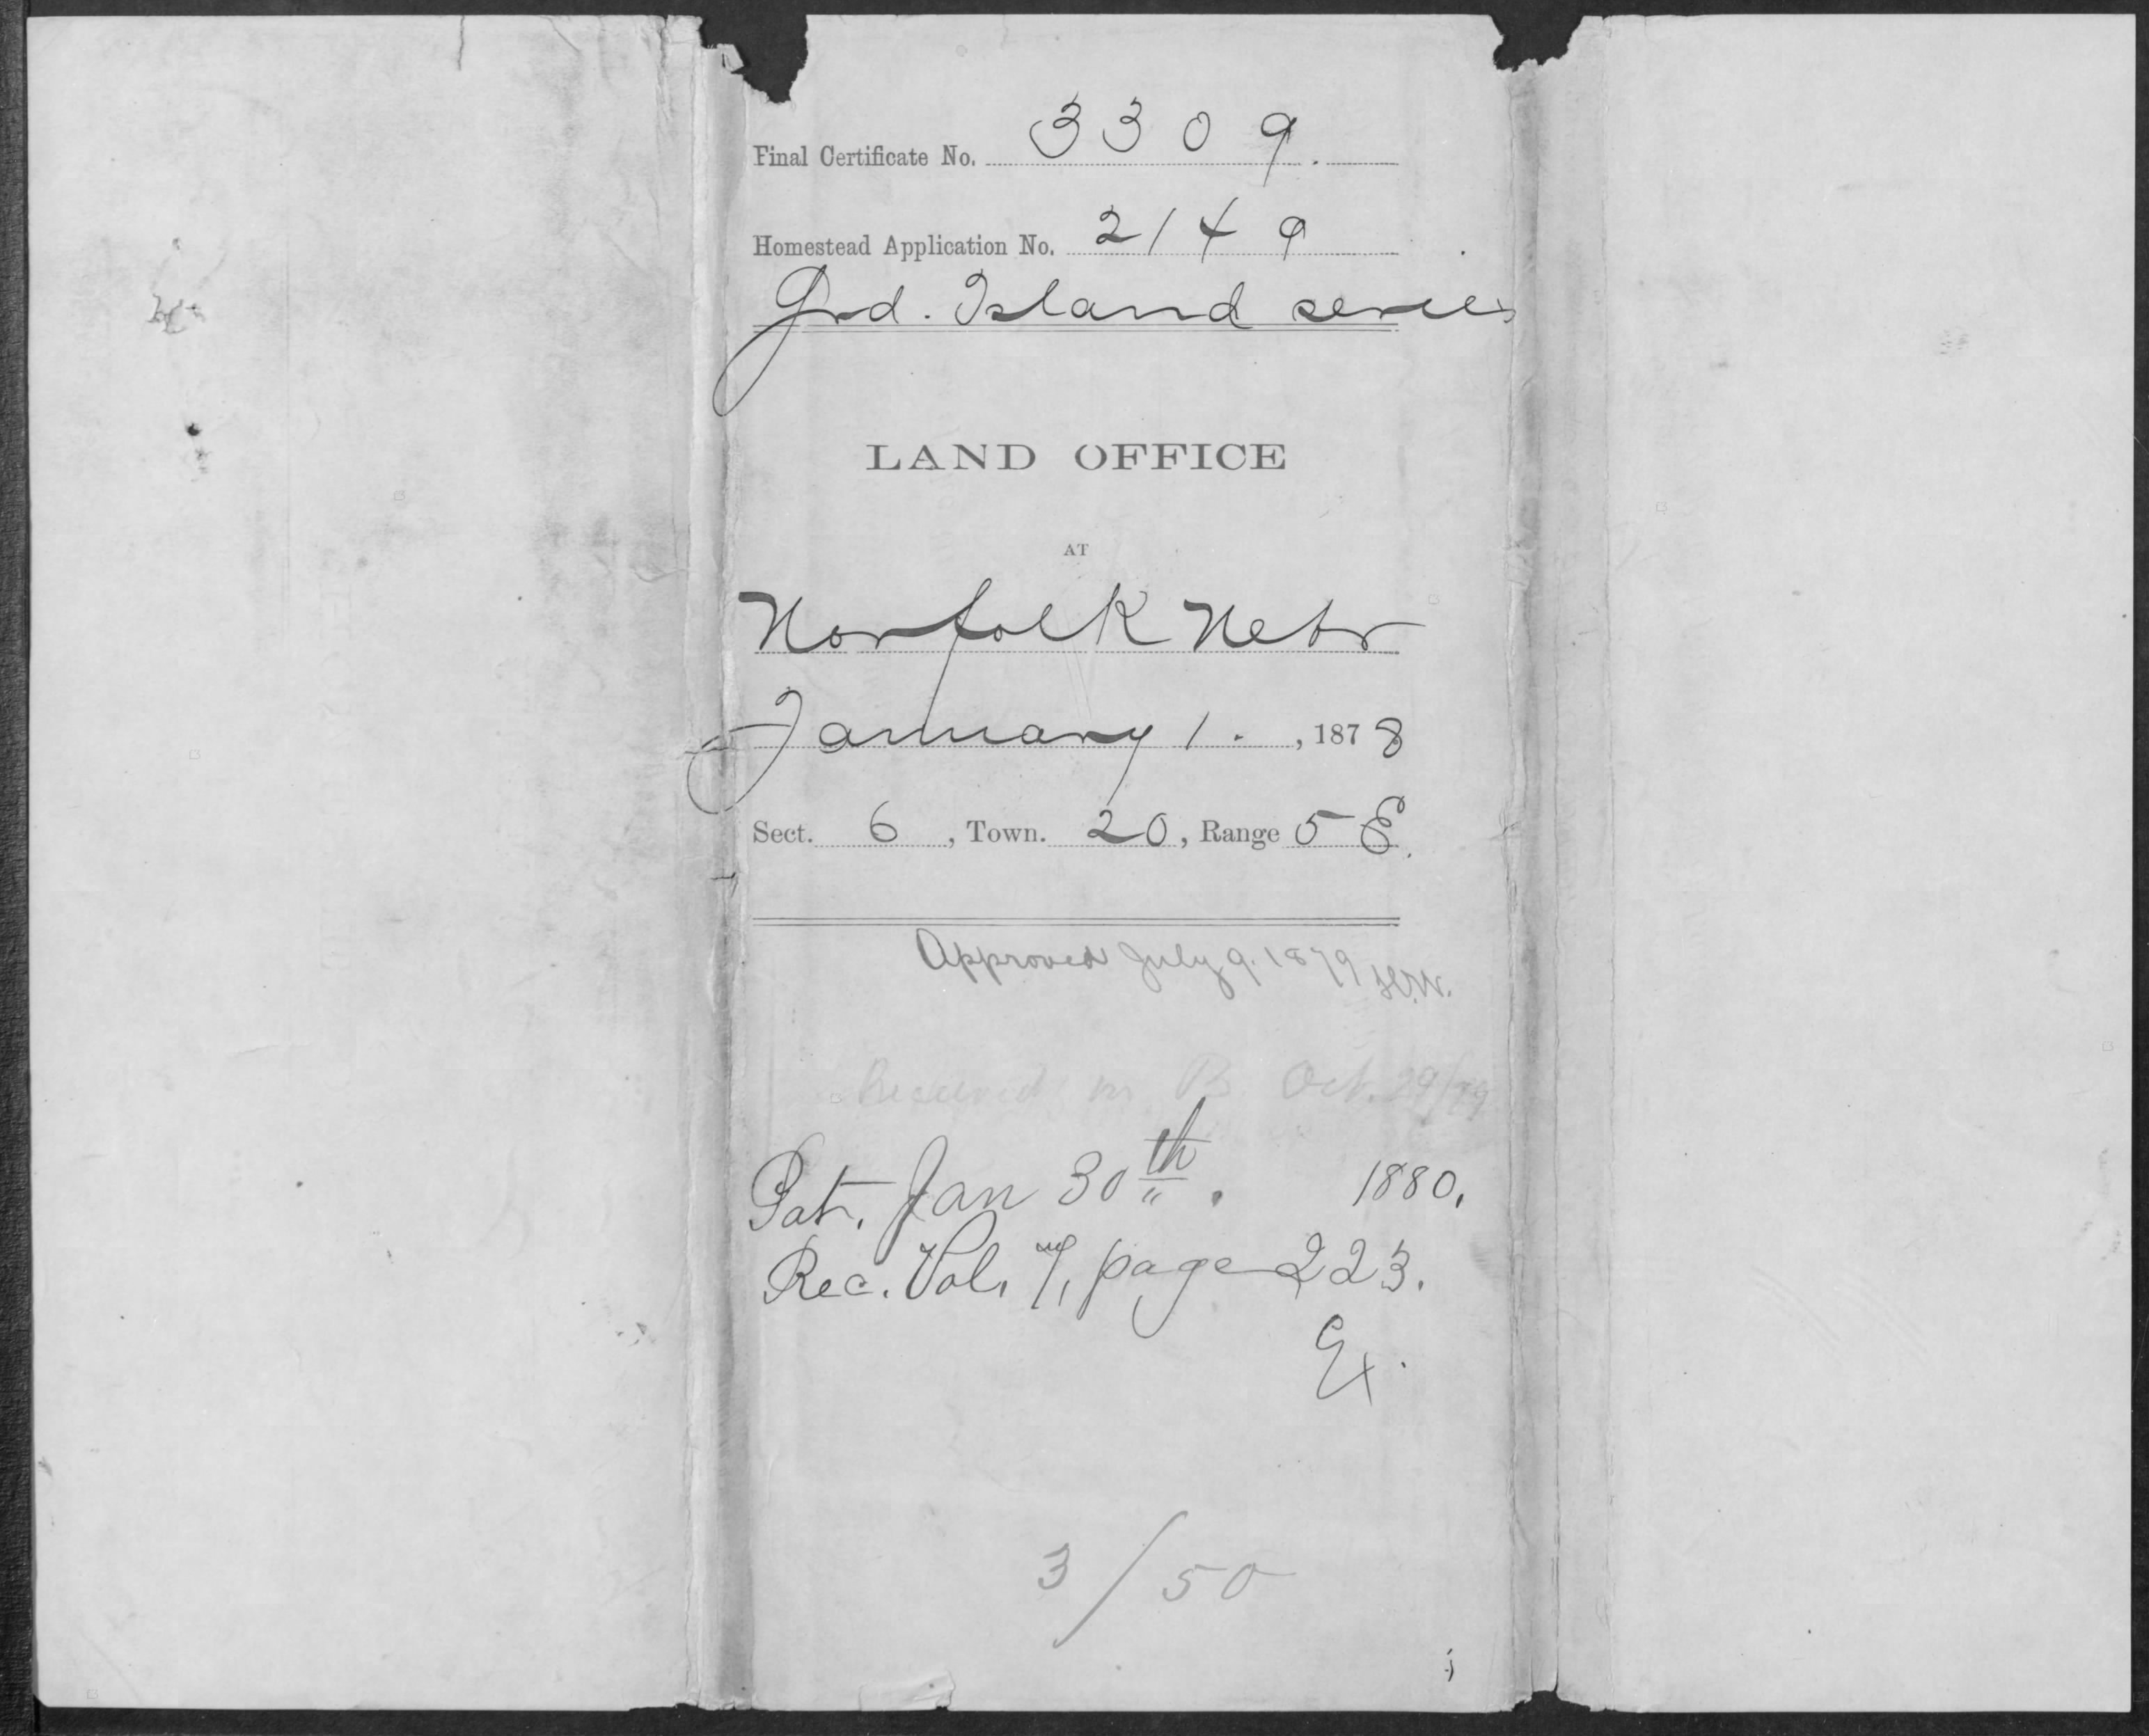 Final Certificate No. 3309.
Homestead Application No. 2149
Grd. Island series
LAND OFFICE
AT
Norfolk Nebr
January 1. , 1878
Sect. 6 , Town. 20 , Range 5 E.
Approved July 9. 1879
Received in B Oct. 29/79
Pat. Jan 30th. 1880.
Rec. Vol. 7, page 223.
Ex.
3/50